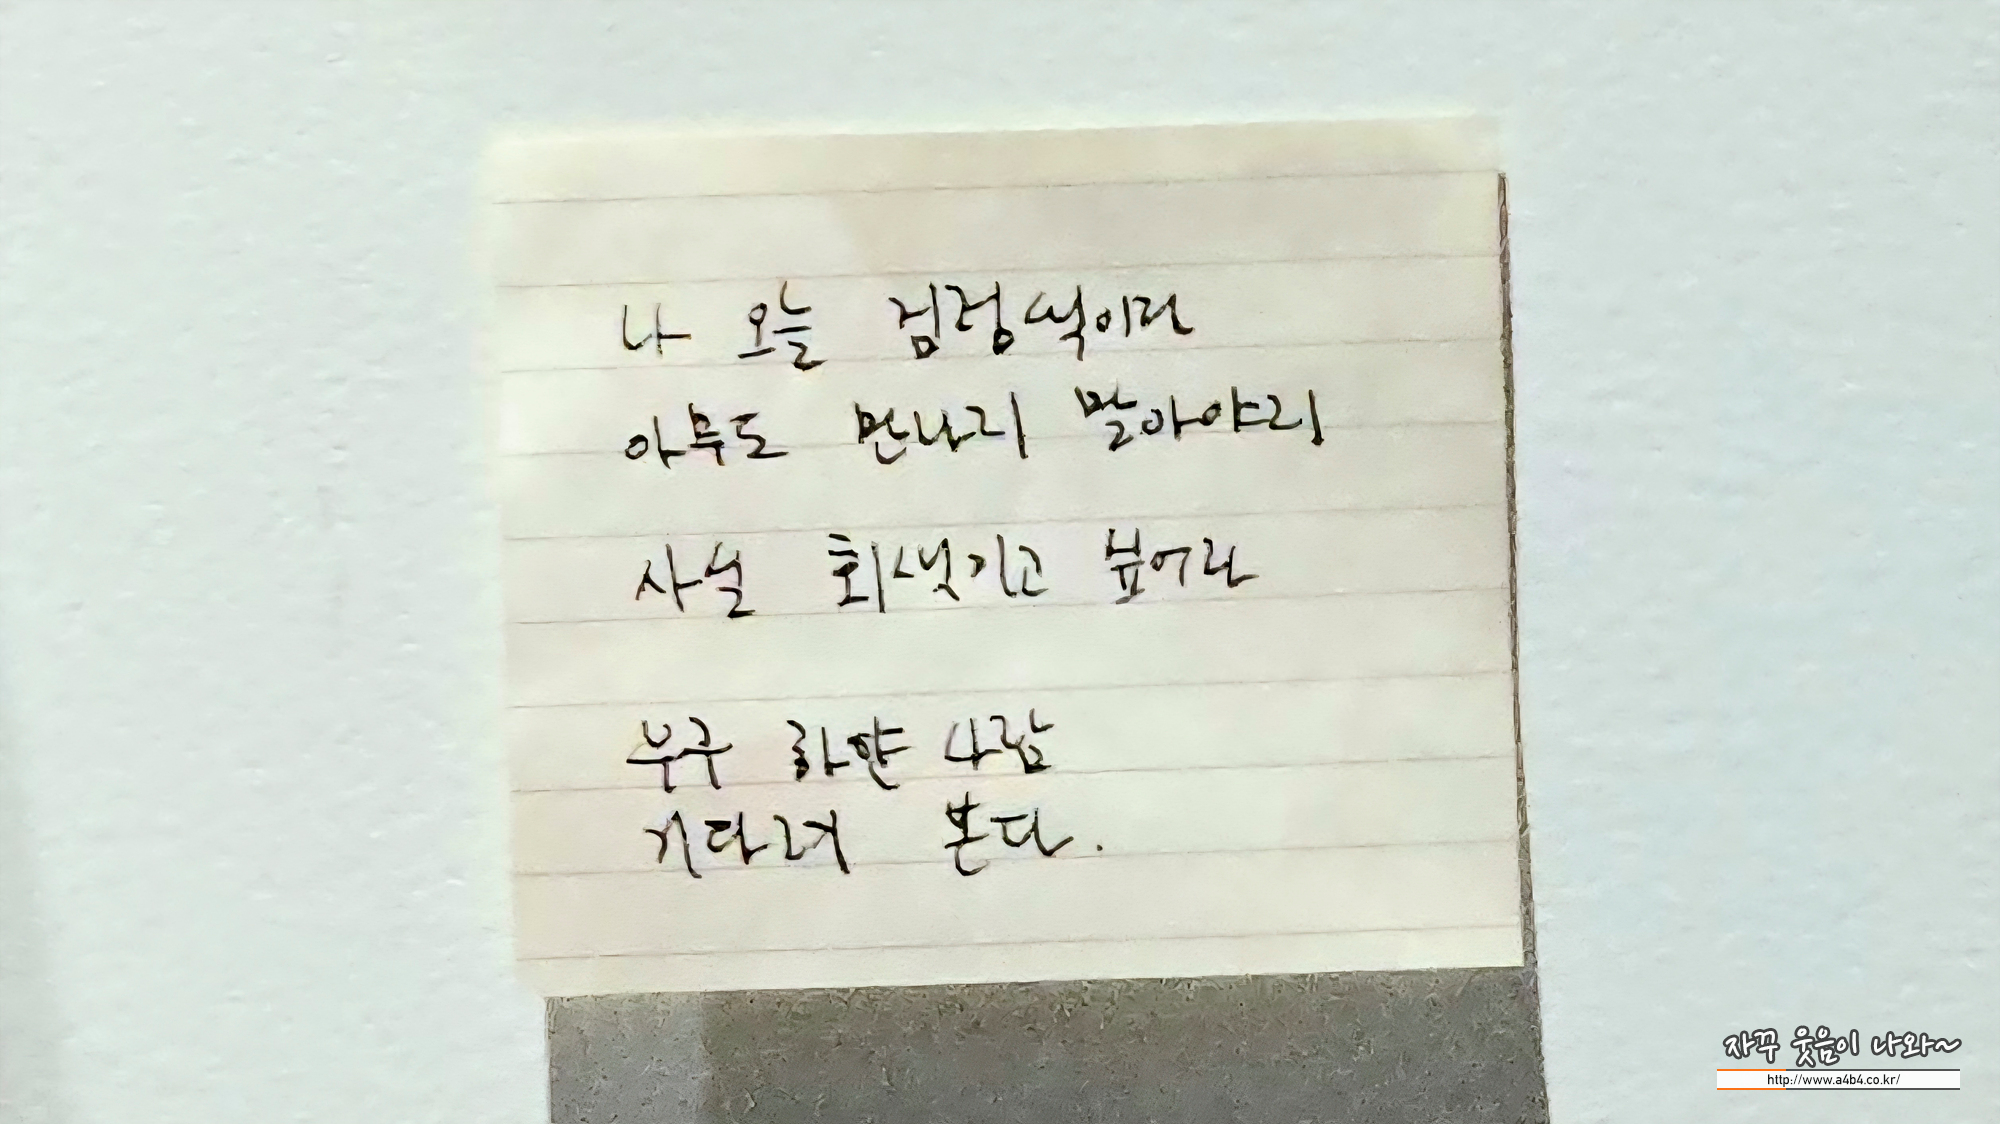 나 오늘 검정색이라
아무도 만나지 말아야지
사실 회색이고 싶어라
부구 하얀 사람
기다려 본다.
자꾸 웃음이 나와~
http://www.a4b4.co.kr/